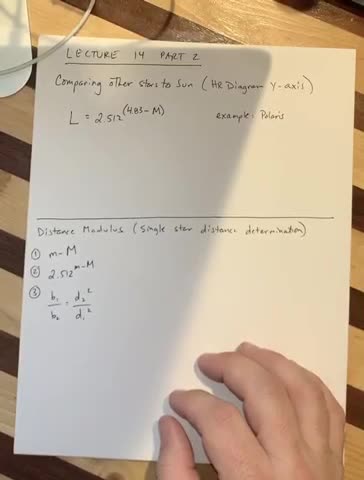 LECTURE 14 PART 2
Comparing other stars to Sun (HR Diagram Y-axis)
L = 2.512^(4.83 - M) example: Polaris
Distance Modulus (Single star distance determination)
① m - M
② 2.512^m-M
③ b₁/b₂ = d₂²/d₁²